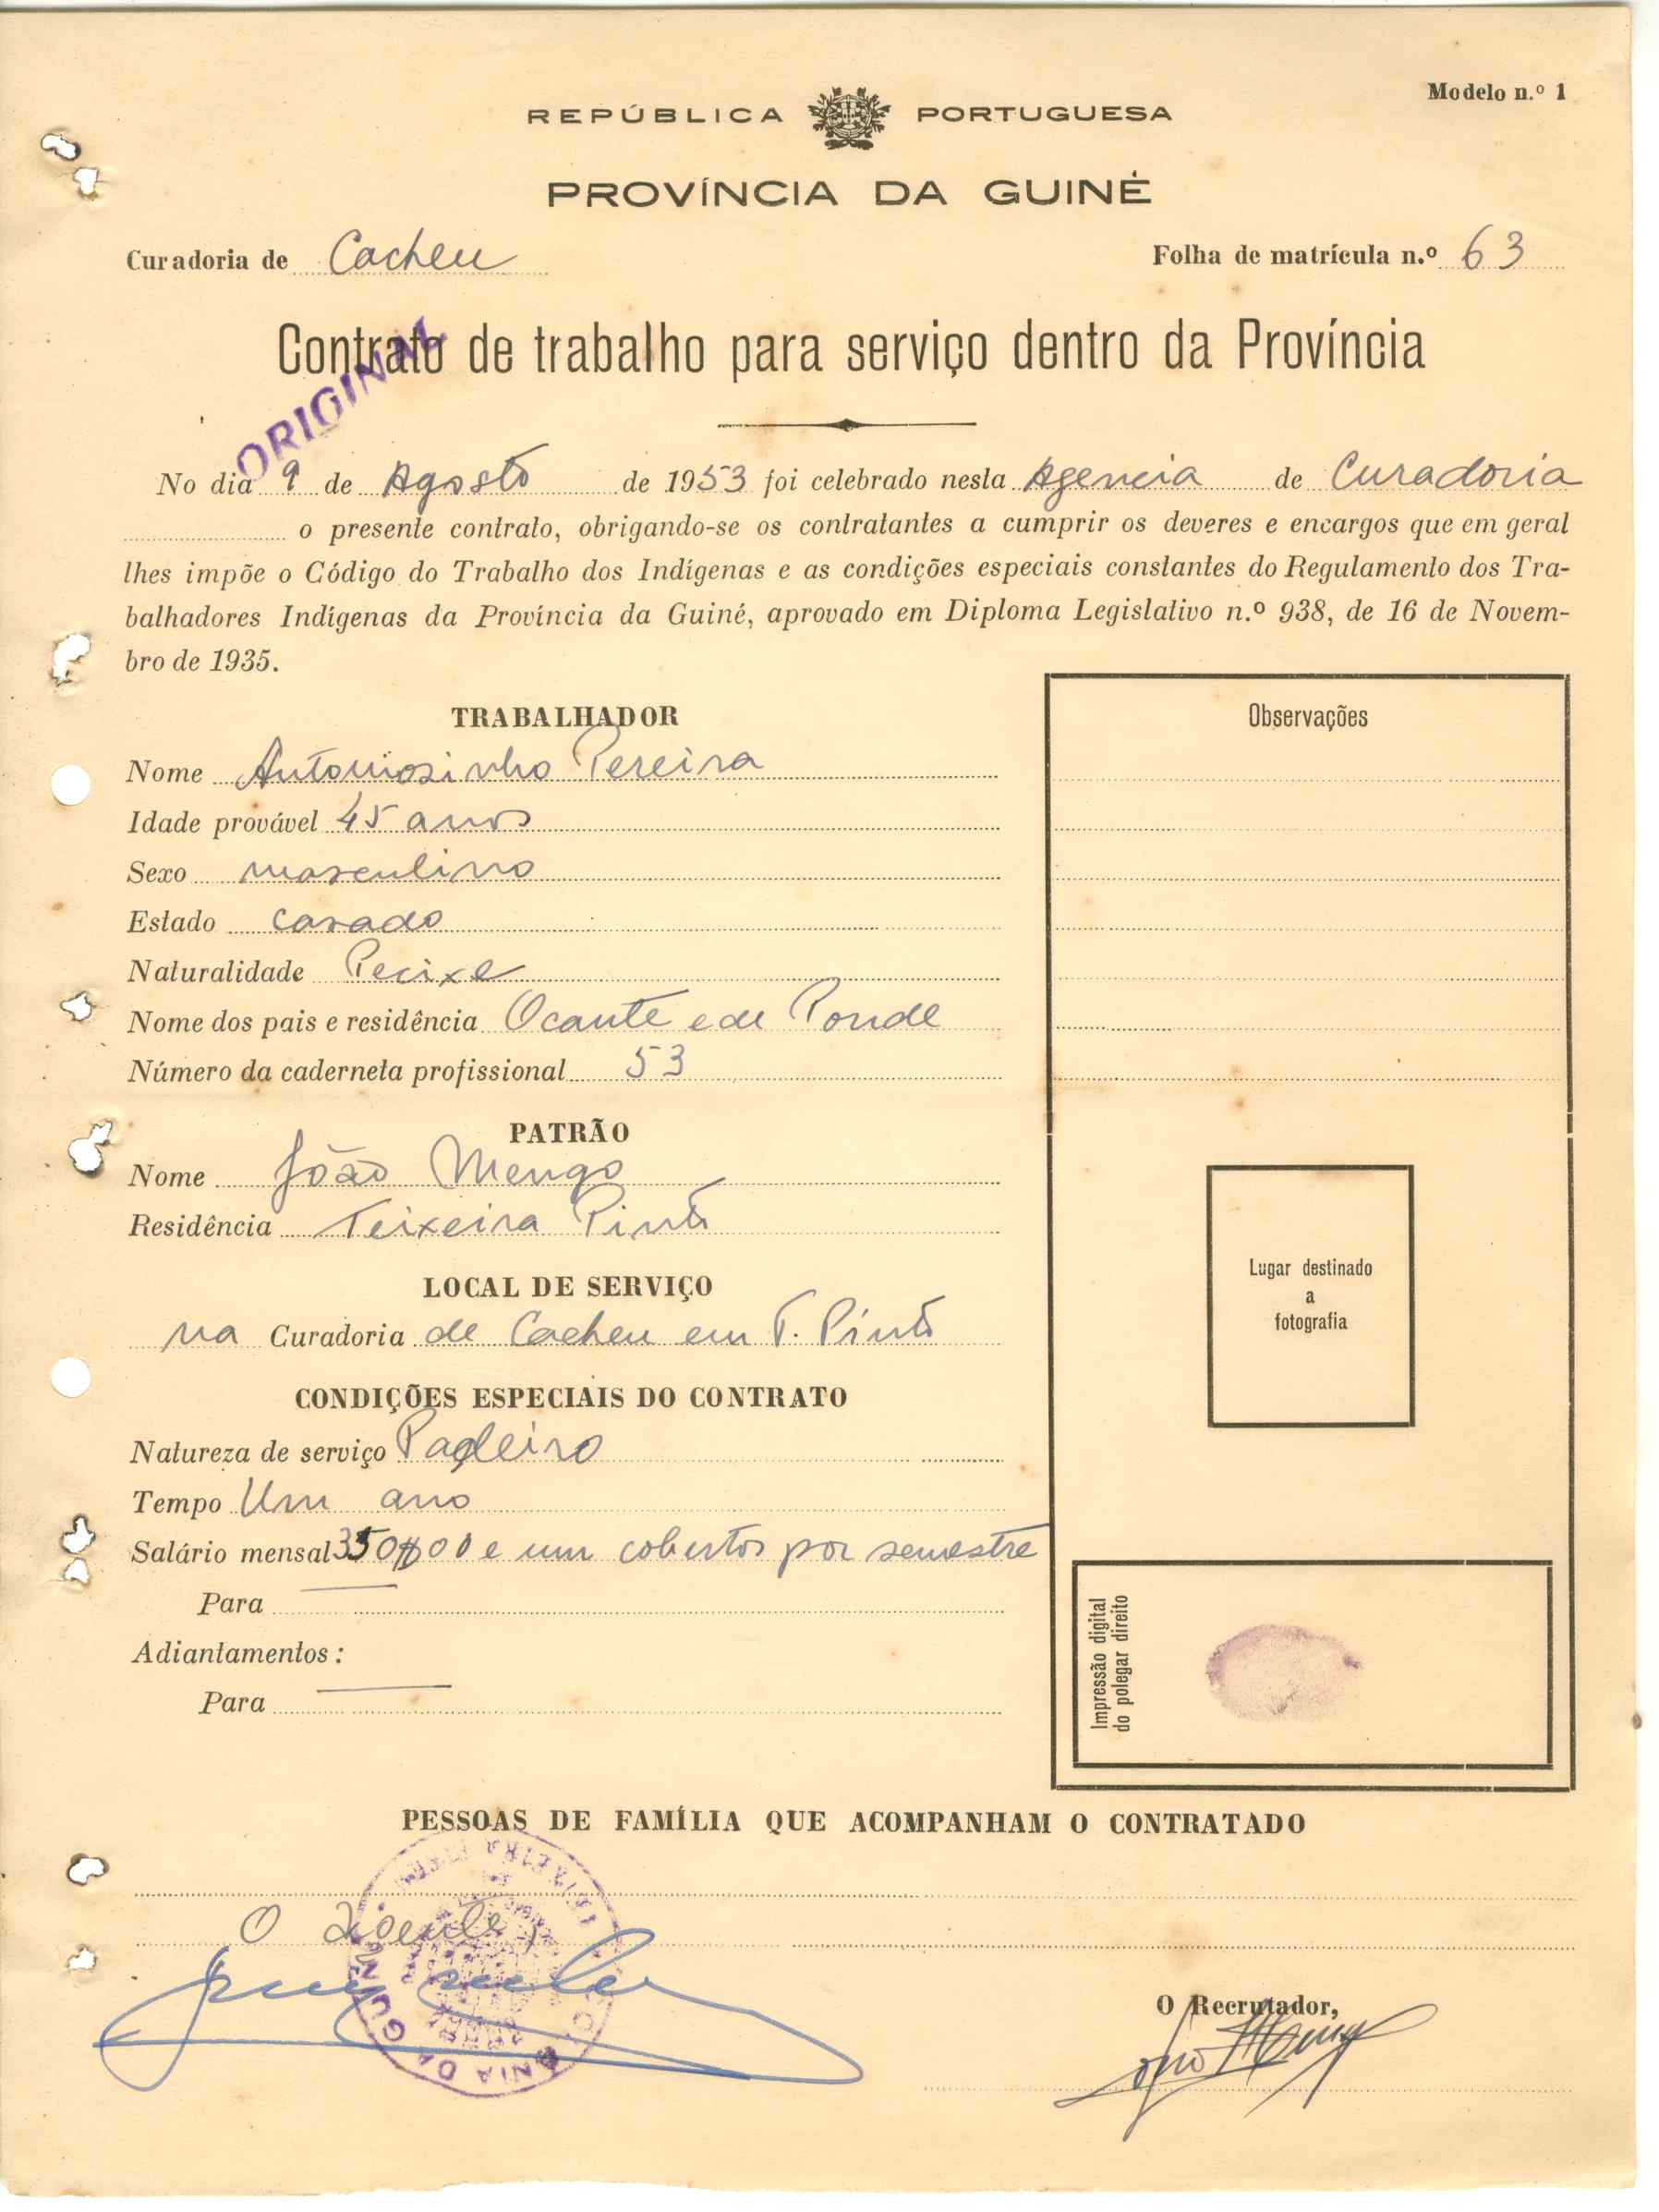 Modelo n.º 1
REPÚBLICA PORTUGUESA
PROVÍNCIA DA GUINÉ
Curadoria de Cacheu Folha de matrícula n.º 63
Contrato de trabalho para serviço dentro da Província
ORIGINAL
No dia 9 de Agosto de 1953 foi celebrado nesta Agencia de Curadoria
o presente contrato, obrigando-se os contratantes a cumprir os deveres e encargos que em geral
lhes impõe o Código do Trabalho dos Indígenas e as condições especiais constantes do Regulamento dos Tra-
balhadores Indígenas da Província da Guiné, aprovado em Diploma Legislativo n.º 938, de 16 de Novem-
bro de 1935.
TRABALHADOR
Nome Antoniosinho Pereira
Idade provável 45 anos
Sexo masculino
Estado casado
Naturalidade Pecixe
Nome dos pais e residência Ocante e de Ponde
Número da caderneta profissional 53
Observações
PATRÃO
Nome João Mengo
Residência Teixeira Pinto
LOCAL DE SERVIÇO
na Curadoria de Cacheu em T. Pinto
Lugar destinado
a
fotografia
CONDIÇÕES ESPECIAIS DO CONTRATO
Natureza de serviço
Tempo Um ano
Salário mensal 350$00 e um cobertos por semestre
Para
Adiantamentos:
Para
Impressão digital
do polegar direito
PESSOAS DE FAMÍLIA QUE ACOMPANHAM O CONTRATADO
O Agente,
COLONIA DA GUINÉ
O Recrutador,
João Mengo